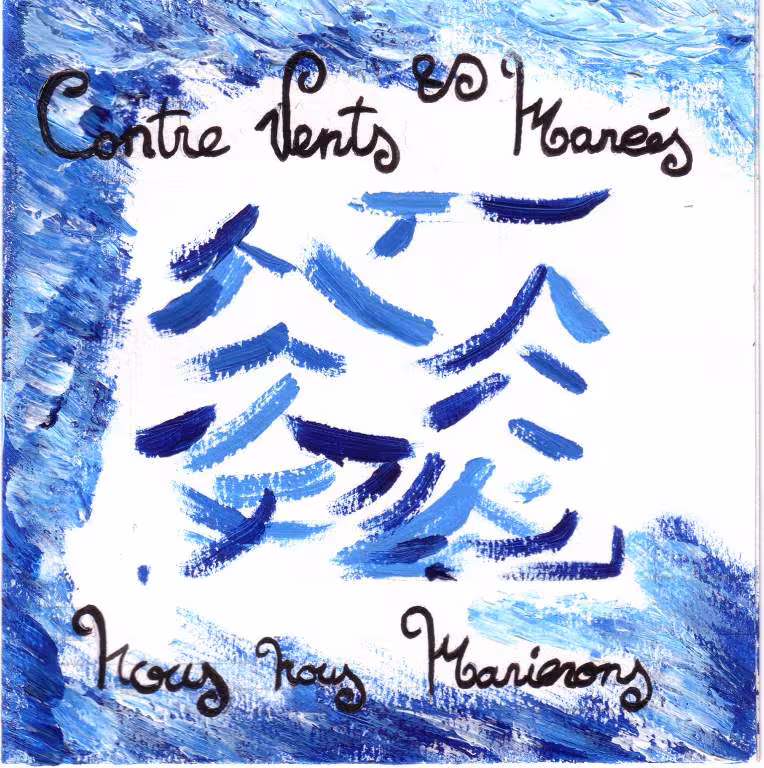 Contre Vents & Mareés
Nous nous Marierons